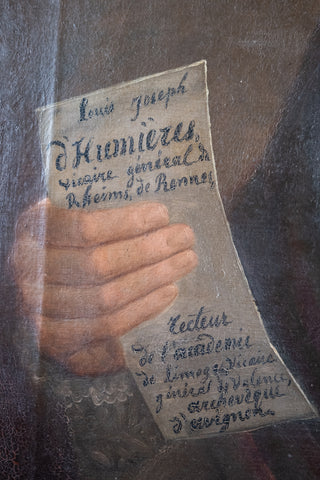 Louis Joseph
d'Humières,
vicaire général de
Rheims, de Rennes,
recteur
de l'academie
de limoges, Vicaire
général de Valence,
archevêque
d'avignon